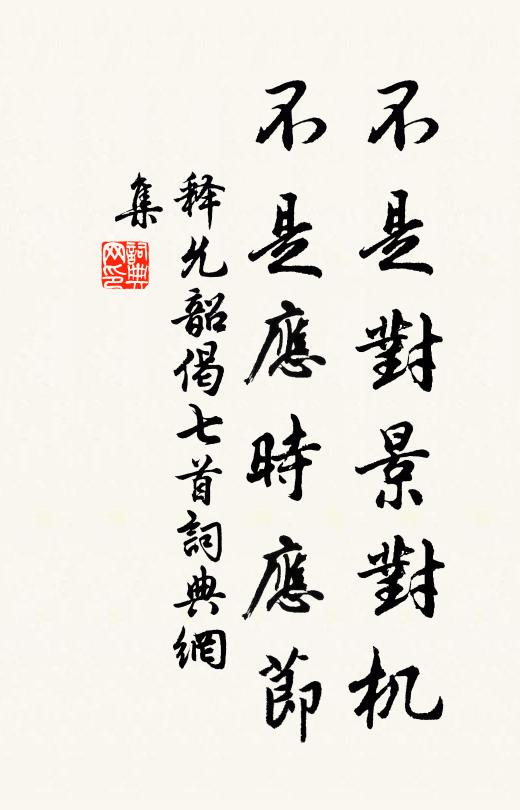 不是對景對机
不是應時應節
释允韶偈七首詞典網
集
詞典網印